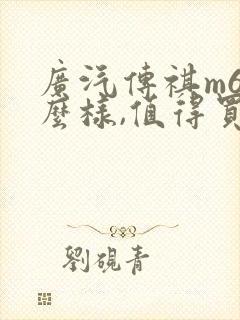 廣汽傳祺m6
麼樣,值得買
劉硯青